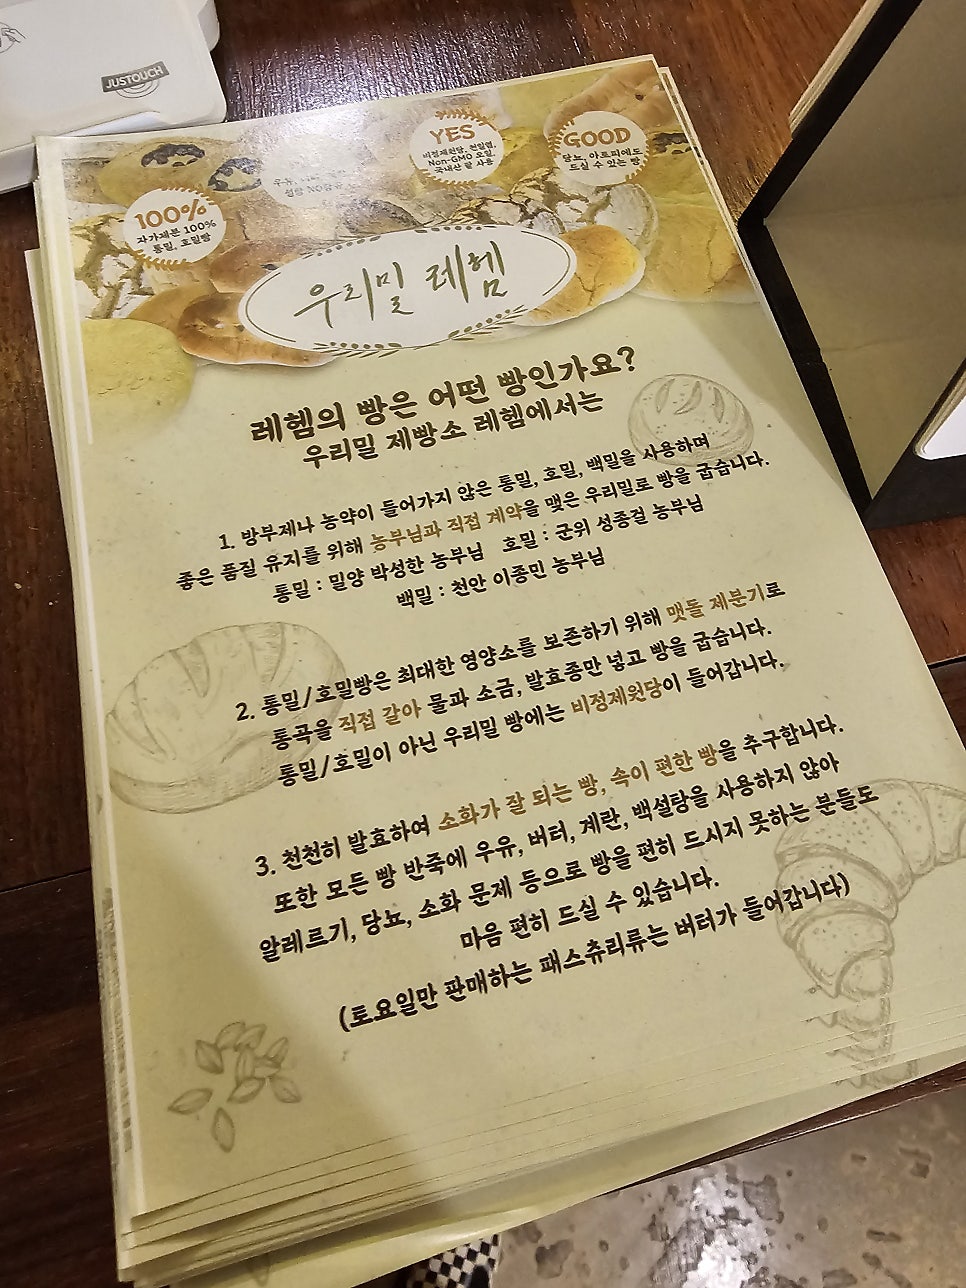 JUSTOUCH
100%
자가제분 100%
통밀, 호밀빵
우유,
설탕 NO
YES
비정제원당, 천일염,
Non-GMO 오일,
국내산 팥 사용
GOOD
당뇨, 아토피에도
드실 수 있는 빵
우리밀 레헴
레헴의 빵은 어떤 빵인가요?
우리밀 제빵소 레헴에서는
1. 방부제나 농약이 들어가지 않은 통밀, 호밀, 백밀을 사용하며
좋은 품질 유지를 위해 농부님과 직접 계약을 맺은 우리밀로 빵을 굽습니다.
통밀 : 밀양 박성한 농부님 호밀 : 군위 성종걸 농부님
백밀 : 천안 이종민 농부님
2. 통밀/호밀빵은 최대한 영양소를 보존하기 위해 맷돌 제분기로
통곡을 직접 갈아 물과 소금, 발효종만 넣고 빵을 굽습니다.
통밀/호밀이 아닌 우리밀 빵에는 비정제원당이 들어갑니다.
3. 천천히 발효하여 소화가 잘 되는 빵, 속이 편한 빵을 추구합니다.
또한 모든 빵 반죽에 우유, 버터, 계란, 백설탕을 사용하지 않아
알레르기, 당뇨, 소화 문제 등으로 빵을 편히 드시지 못하는 분들도
마음 편히 드실 수 있습니다.
(토요일만 판매하는 패스츄리류는 버터가 들어갑니다)